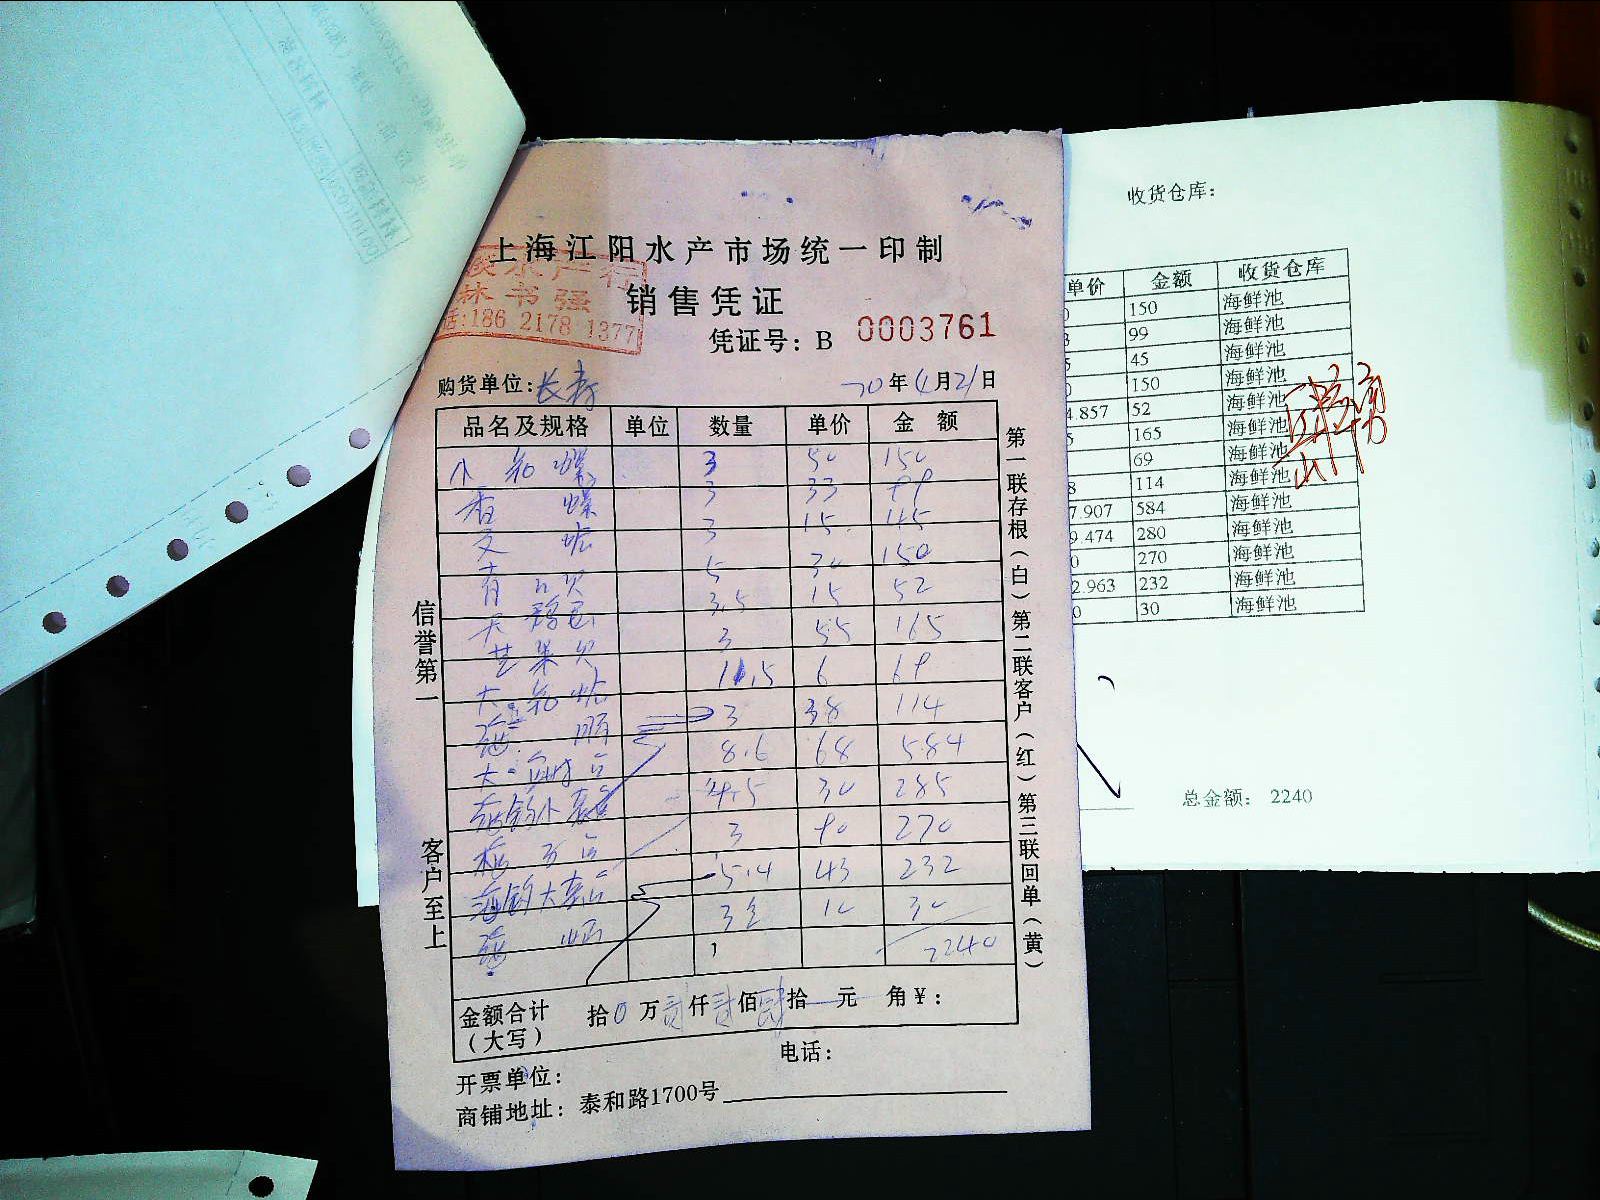 上海江阳水产市场统一印制
水产行
林书强
话:186 2178 1377
销售凭证
凭证号：B 0003761
购货单位：长寿
20年4月21日
品名及规格 单位 数量 单价 金额
小 螺 3 50 150
香 螺 3 33 99
文 蛤 3 15 45
青口贝 5 30 150
3.5 15 52
苹果贝 3 55 165
大 蛤 11.5 6 69
海 3 38 114
大 8.6 68 584
9.5 30 285
3 90 270
海钓大 5.4 43 232
海 3 10 30
2240
金额合计
（大写）
拾0万贰仟贰佰肆拾元 角￥：
电话：
开票单位：
商铺地址：泰和路1700号
信誉第一
客户至上
第一联存根（白）第二联客户（红）第三联回单（黄）
收货仓库：
单价 金额 收货仓库
150 海鲜池
99 海鲜池
45 海鲜池
150 海鲜池
4.857 52 海鲜池
165 海鲜池
69 海鲜池
114 海鲜池
7.907 584 海鲜池
9.474 280 海鲜池
270 海鲜池
2.963 232 海鲜池
30 海鲜池
总金额： 2240